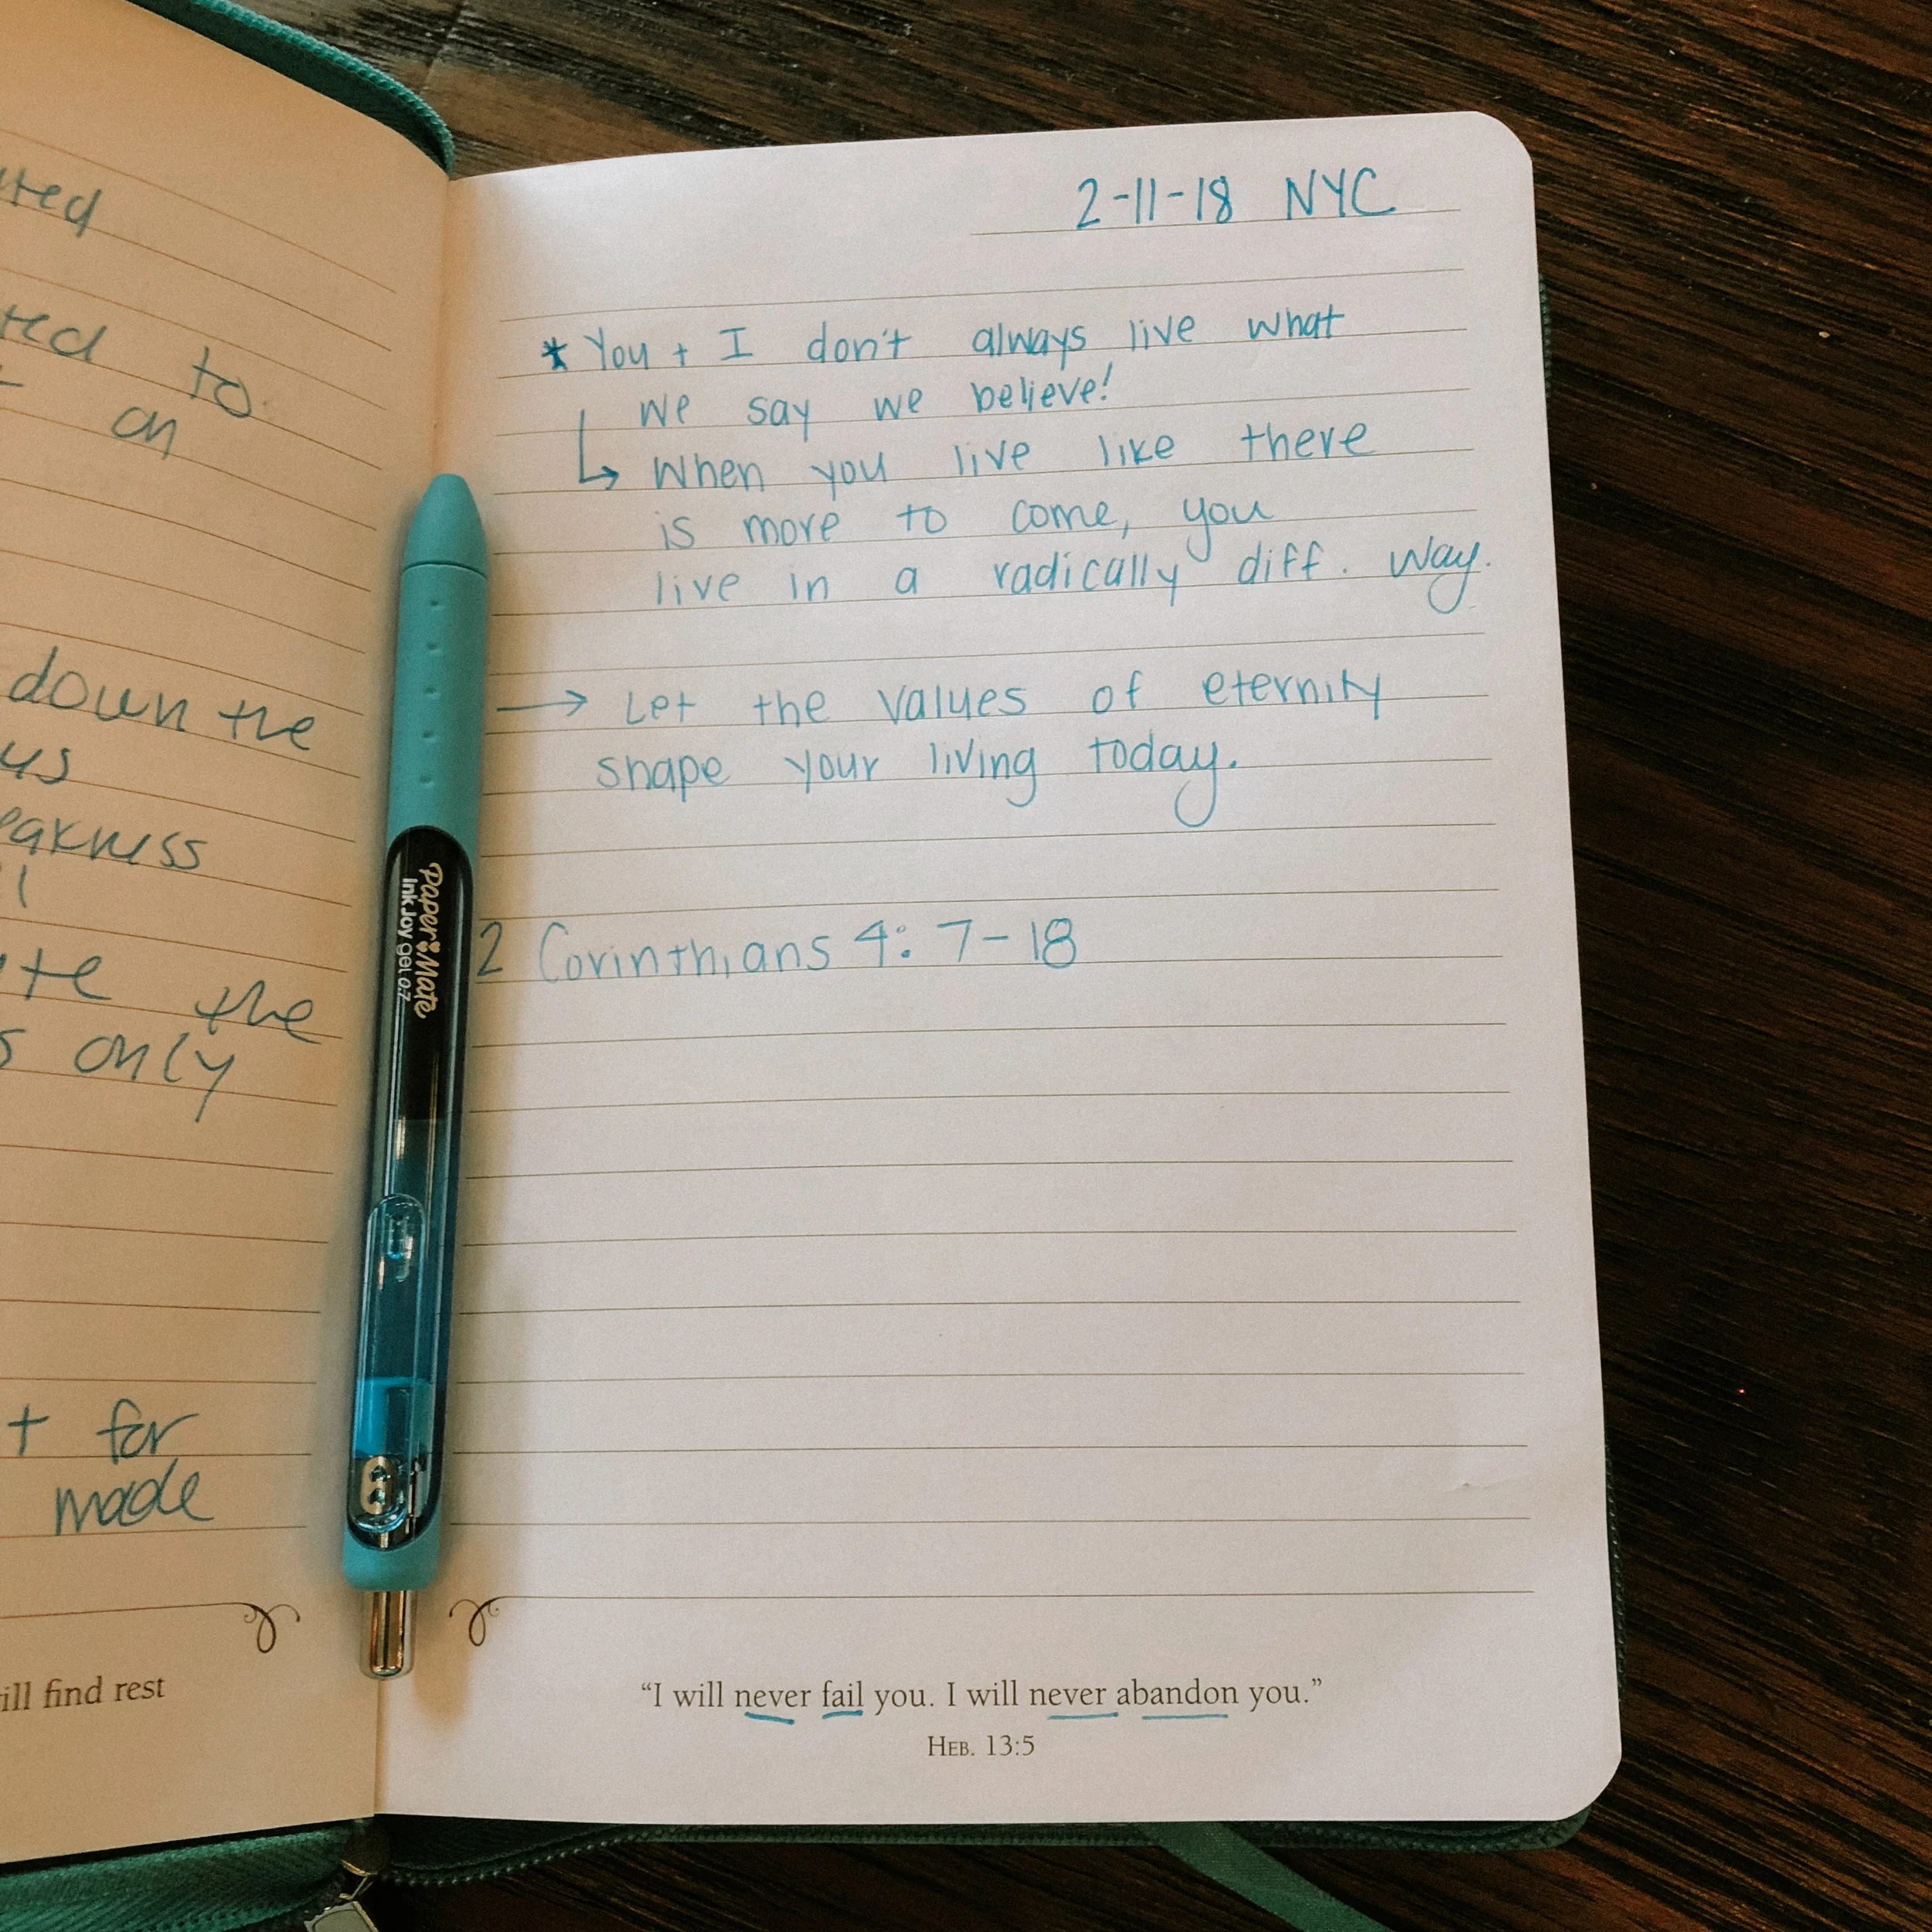 to
on
down the
us
the
only
+ for
made
find rest
2-11-18 NYC
* You + I don't always live what
we say we believe!
↳ When you live like there
is more to come, you
live in a radically diff. way.
→ Let the values of eternity
shape your living today.
2 Corinthians 4: 7-18
"I will never fail you. I will never abandon you."
HEB. 13:5
Paper Mate
InkJoy gel 0.7